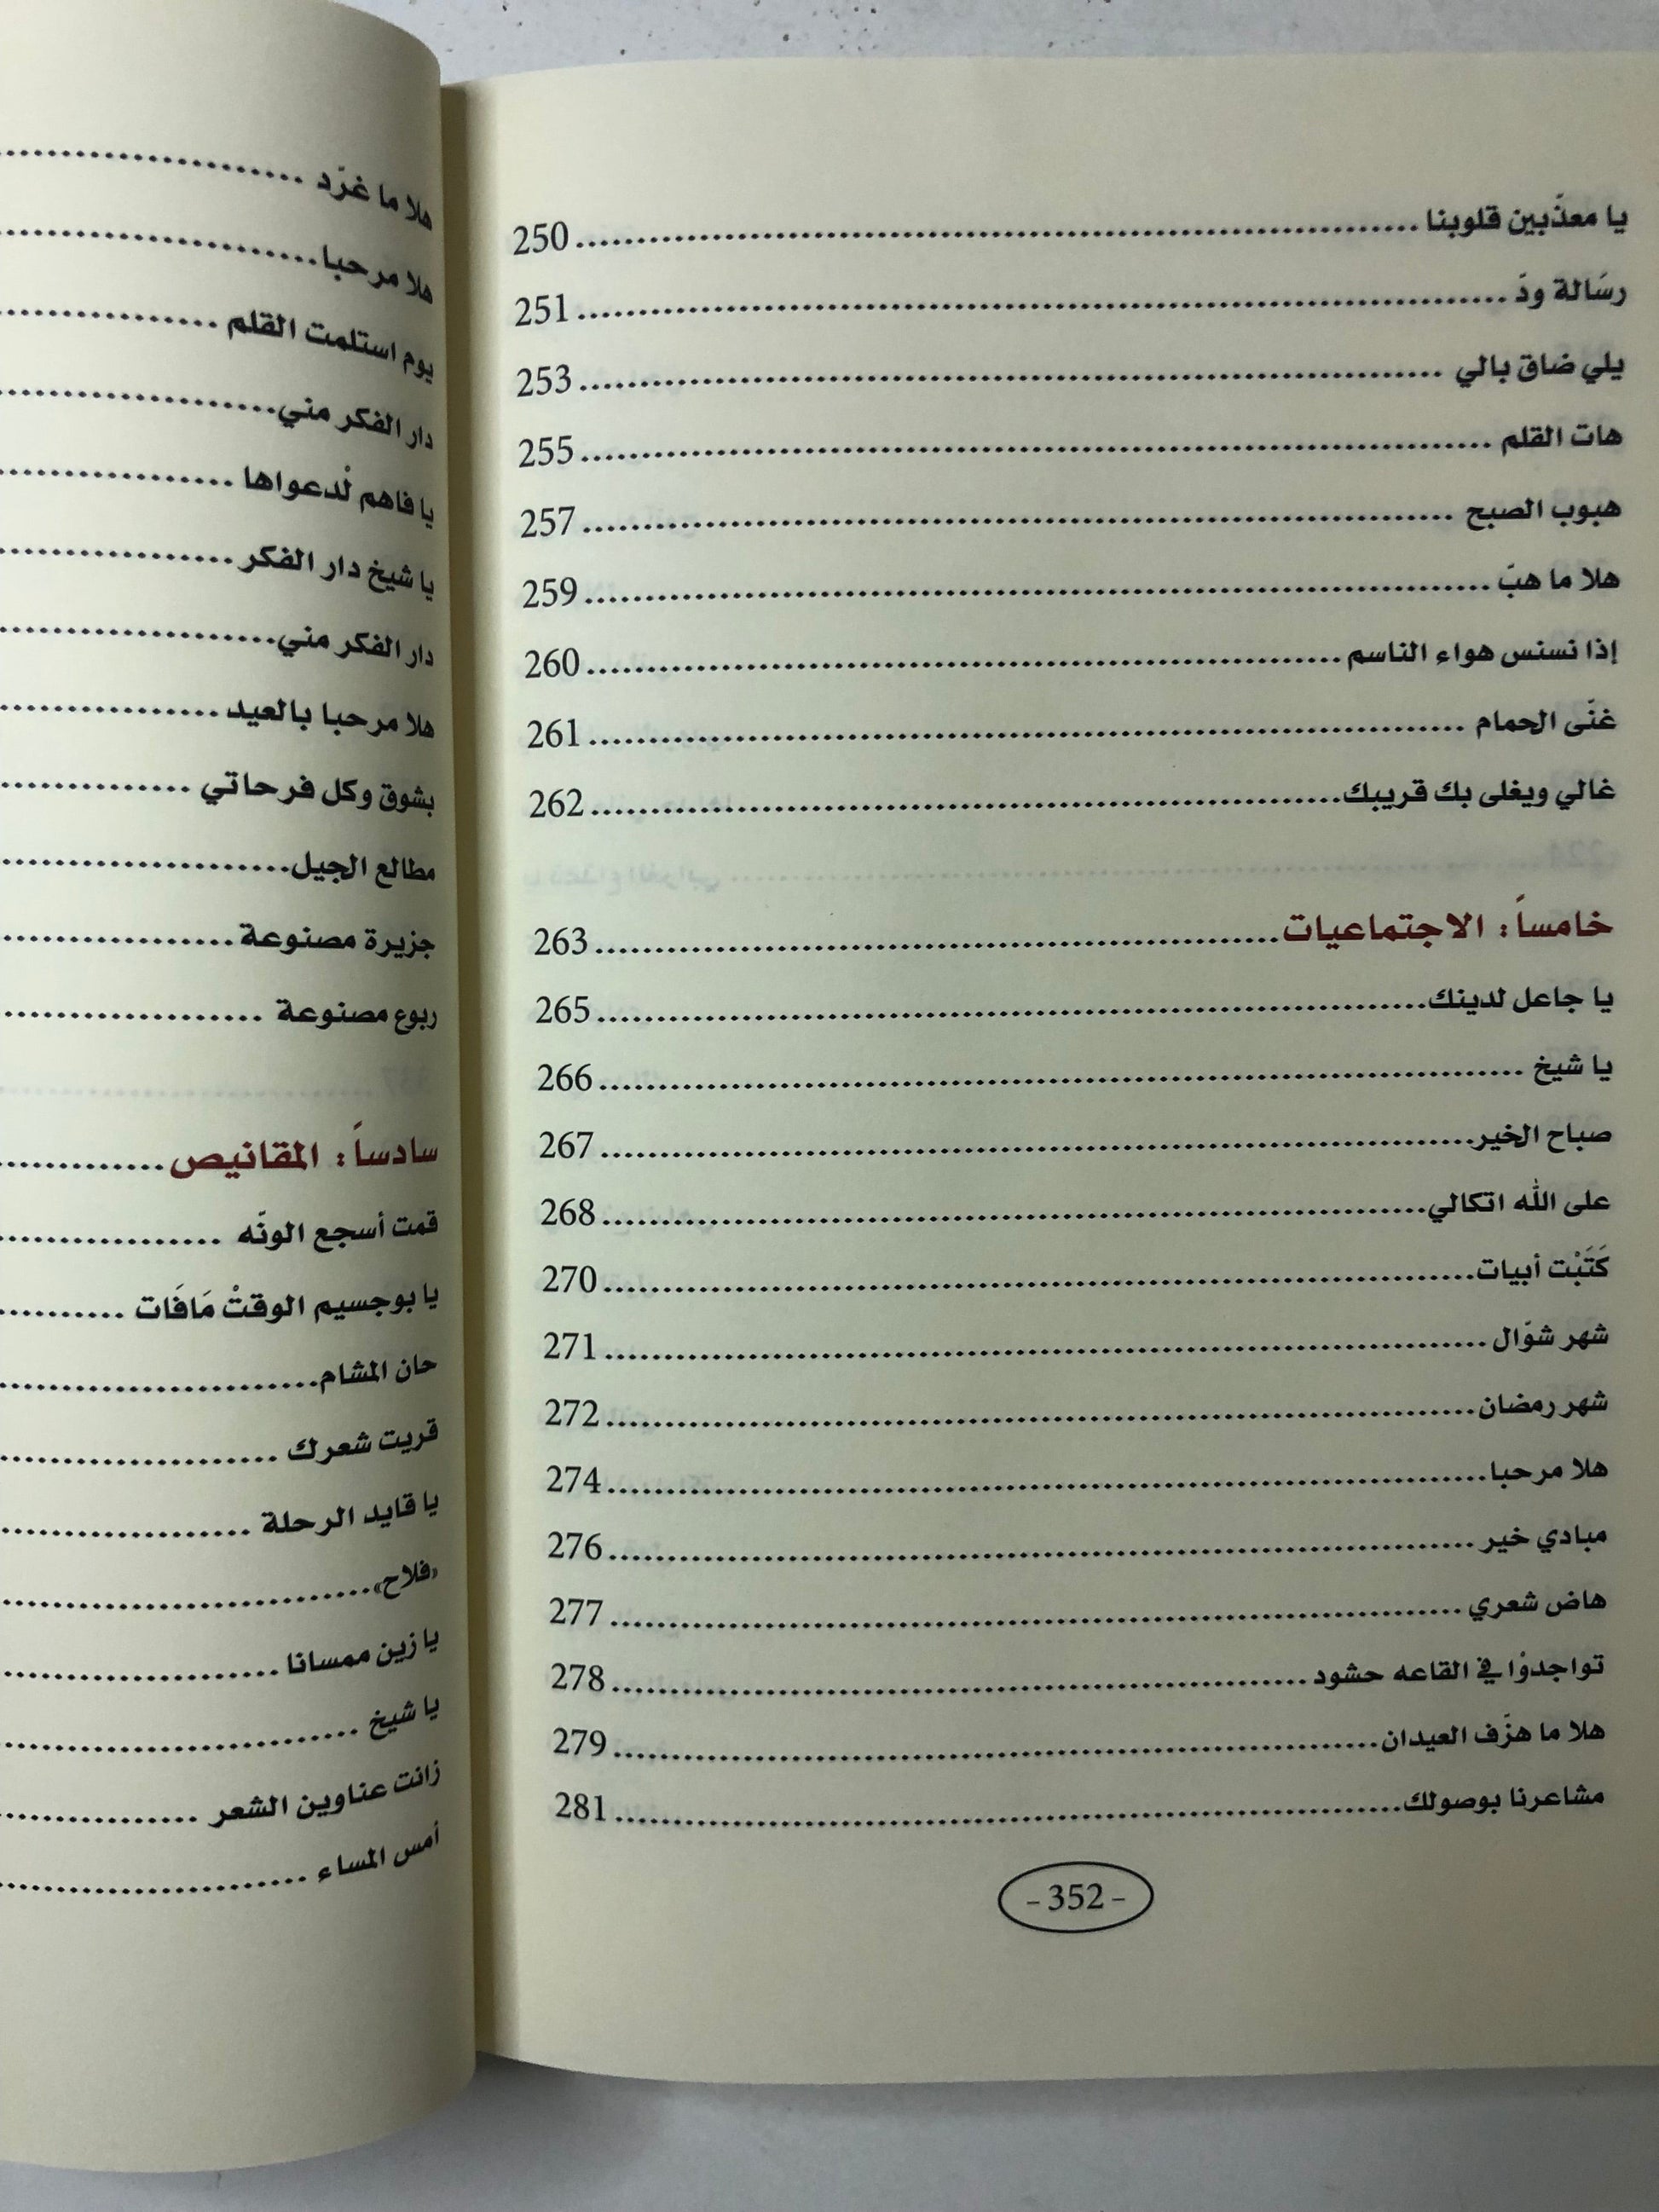 يا معذّبين قلوبنا ........ 250
رسَالة ودّ ........ 251
يلي ضاق بالي ........ 253
هات القلم ........ 255
هبوب الصبح ........ 257
هلا ما هبّ ........ 259
إذا نسنس هواء الناسم ........ 260
غنّى الحمام ........ 261
غالي ويغلى بك قريبك ........ 262
خامساً: الاجتماعيات ........ 263
يا جاعل لدينك ........ 265
يا شيخ ........ 266
صباح الخير ........ 267
على الله اتكالي ........ 268
كَتَبْت أبيات ........ 270
شهر شوّال ........ 271
شهر رمضان ........ 272
هلا مرحبا ........ 274
مبادي خير ........ 276
هاض شعري ........ 277
تواجدوْا في القاعه حشود ........ 278
هلا ما هزّف العيدان ........ 279
مشاعرنا بوصولك ........ 281
- 352 -
هلا ما غرّد ........
هلا مرحبا ........
يوم استلمت القلم ........
دار الفكر مني ........
يا فاهم لْدعواها ........
يا شيخ دار الفكر ........
دار الفكر مني ........
هلا مرحبا بالعيد ........
بشوق وكل فرحاتي ........
مطالع الجيل ........
جزيرة مصنوعة ........
ربوع مصنوعة ........
سادساً: المقانيص ........
قمت أسجع الونّه ........
يا بوجسيم الوقتْ مَافَات ........
حان المشام ........
قريت شعرك ........
يا قايد الرحلة ........
«فلاح» ........
يا زين ممسانا ........
يا شيخ ........
زانت عناوين الشعر ........
أمس المساء ........